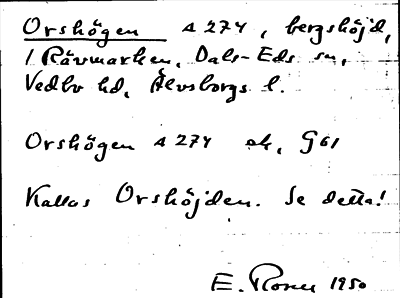 Orshögen s 274, bergshöjd,
i Rävmarken, Dals-Eds sn,
Vedbo hd, Älvsborgs l.
Orshögen s 274 ek, G61
Kallas Orshöjden. Se detta!
E. 1950